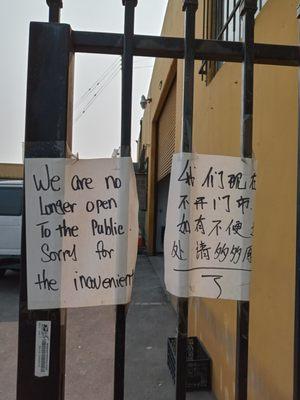 We are no
Longer open
To the Public
Sorry for
the inconvenient
我们现在
不开门市
如有不便
处请多多原
了